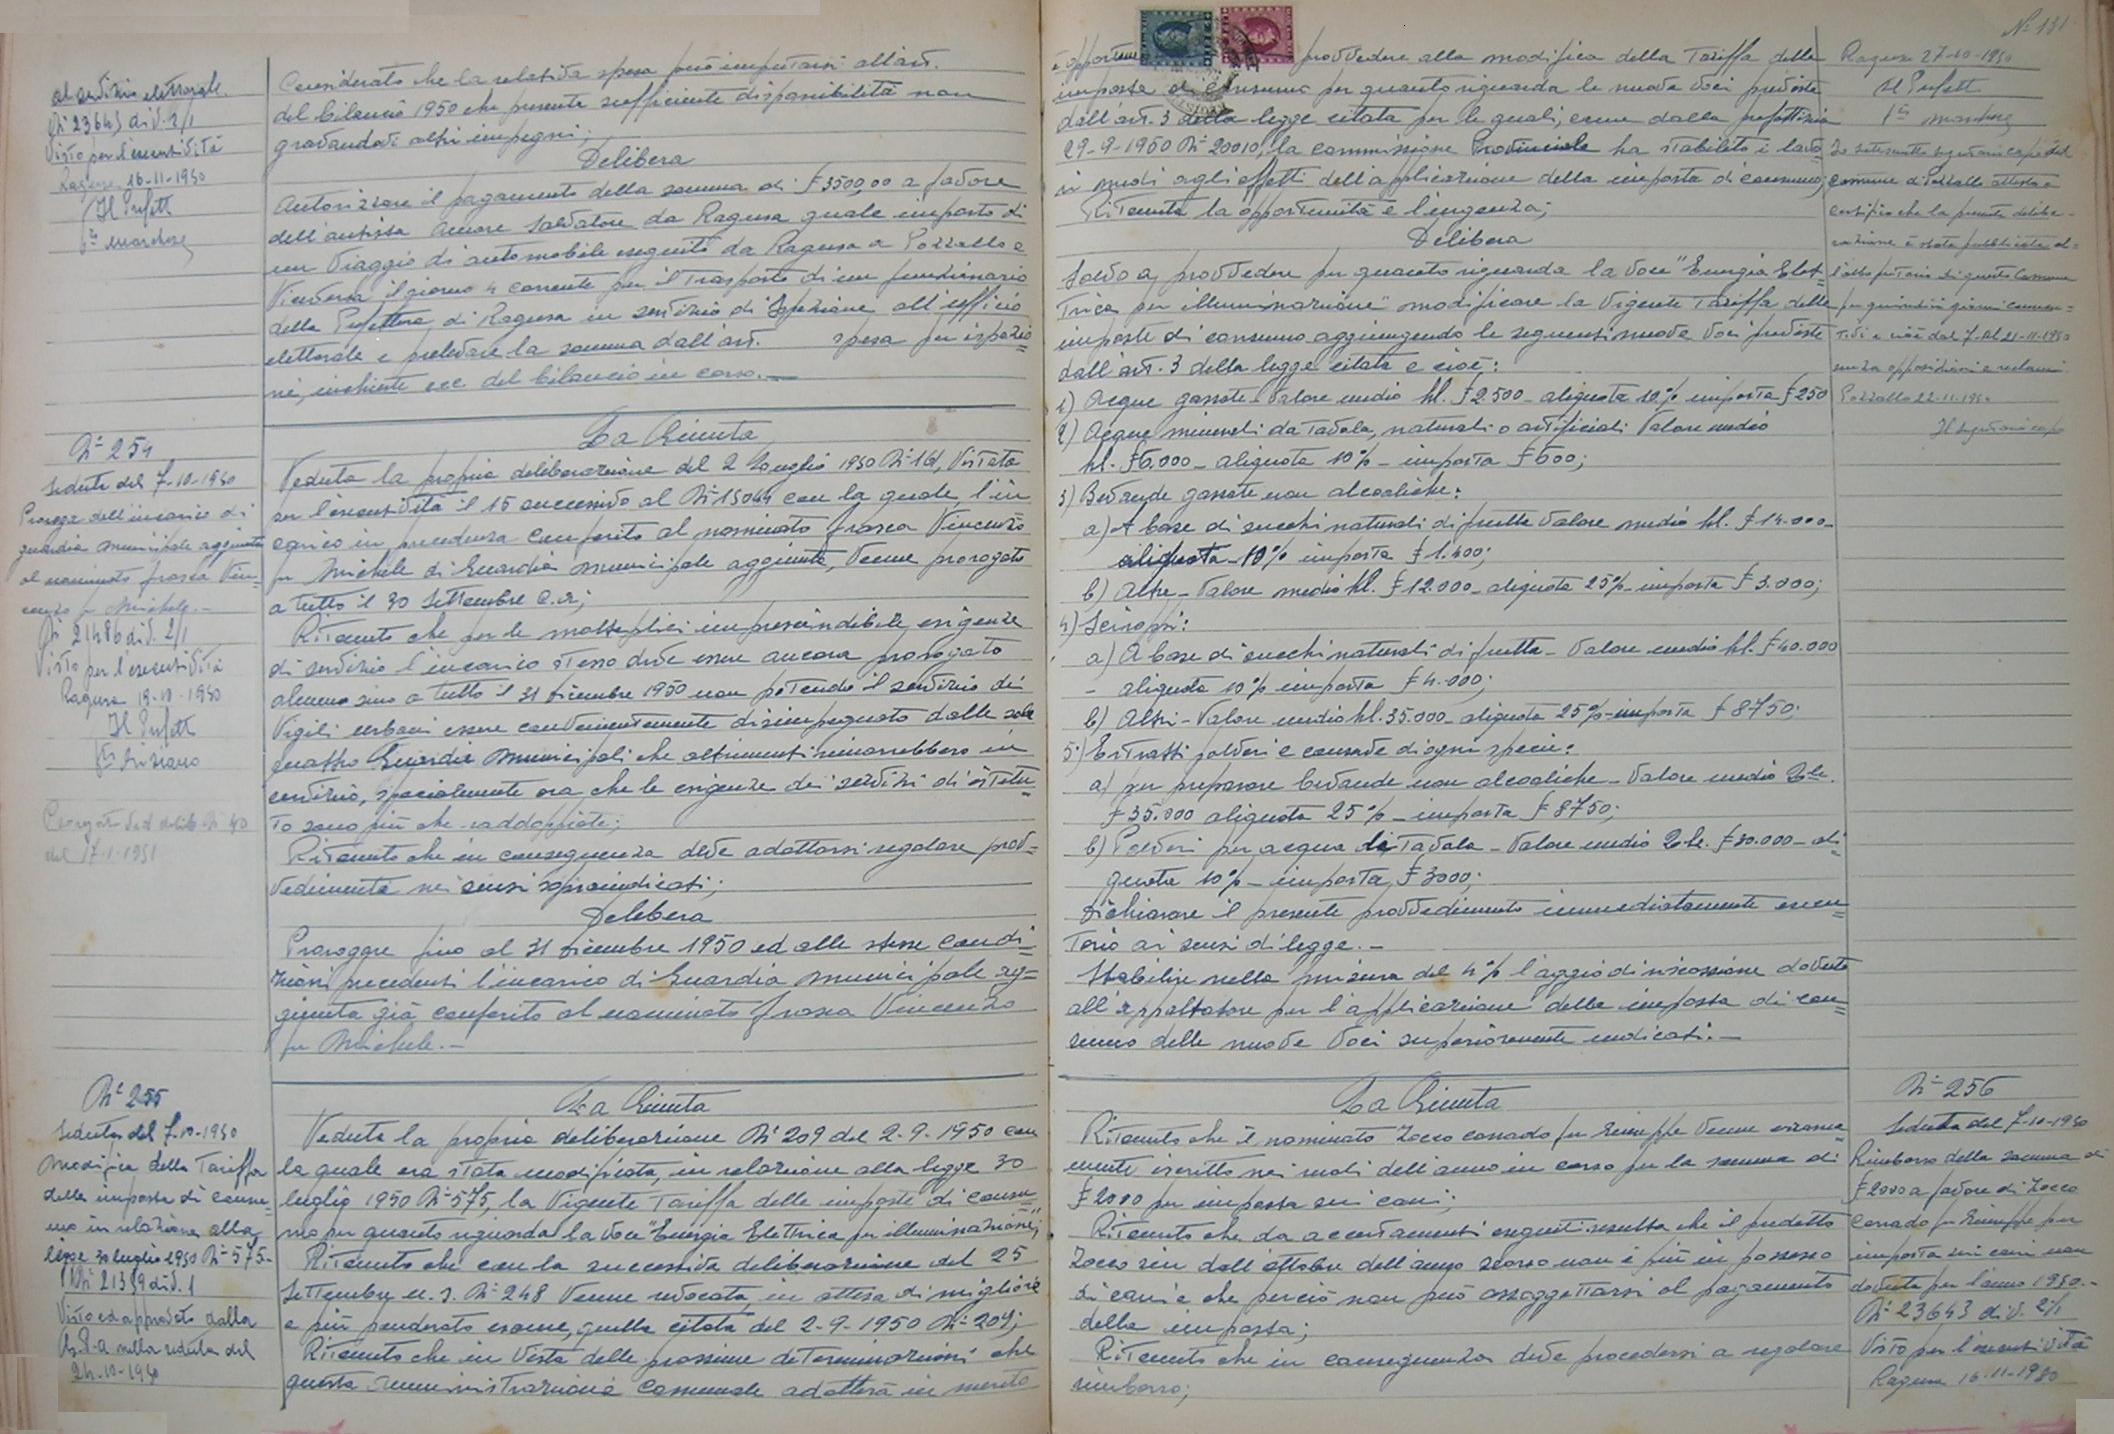 al servizio elettorale.
N° 23643 div. 2/1
Visto per l'esecutività
Ragusa 16-11-1950
Il Prefetto
Fto Marchese
Considerato che la relativa spesa può imputarsi all'art.
del bilancio 1950 che presenta sufficiente disponibilità non
gravandovi altri impegni;
Delibera
Autorizzare il pagamento della somma di £ 3500,00 a favore
dell'autista Amore Salvatore da Ragusa quale importo di
un viaggio di automobile eseguito da Ragusa a Pozzallo e
viceversa il giorno 4 corrente per il trasporto di un funzionario
della Prefettura di Ragusa in servizio di Ispezione all'ufficio
elettorale e prelevare la somma dall'art. spesa per ispezio=
ni, inchieste ecc. del bilancio in corso.—
N° 254
Seduta del 7-10-1950
Proroga dell'incarico di
guardia municipale aggiunta
al nominato Frasca Vin=
cenzo fu Michele.—
N° 21486 div. 2/1
Visto per l'esecutività
Ragusa 19-10-1950
Il Prefetto
Prorogato Ved delib. N° 40
del 17-1-1951
La Giunta
Veduta la propria deliberazione del 2 Luglio 1950 N° 161, Vistata
per l'esecutività il 15 successivo al N° 15044 con la quale l'in
carico in precedenza conferito al nominato Frasca Vincenzo
fu Michele di Guardia municipale aggiunta, venne prorogato
a tutto il 30 Settembre c.a;
Ritenuto che per le molteplici imprescindibili esigenze
di servizio l'incarico stesso deve essere ancora prorogato
almeno sino a tutto il 31 dicembre 1950 non potendo il servizio di
Vigili urbani essere convenientemente disimpegnato dalle sole
quattro Guardie Municipali che altrimenti rimarrebbero in
servizio, specialmente ora che le esigenze dei servizi di istitu=
to sono più che raddoppiate;
Ritenuto che in conseguenza deve adottarsi regolare prov=
vedimento nei sensi sopraindicati;
Delibera
Prorogare fino al 31 dicembre 1950 ed alle stesse condi=
zioni precedenti l'incarico di Guardia municipale ag=
giunta già conferito al nominato Frasca Vincenzo
fu Michele.—
N° 255
Seduta del 7-10-1950
Modifica della Tariffa
della imposta di consu=
mo in relazione alla
legge 30 luglio 1950 N° 575-
N° 21359 div. 1
Visto ed approvato dalla
G.P.A nella seduta del
24-10-1950
La Giunta
Veduta la propria deliberazione N° 209 del 2-9-1950 con
la quale era stata modificata, in relazione alla legge 30
luglio 1950 N° 575, la vigente Tariffa delle imposte di consu=
mo per quanto riguarda la voce "Energia Elettrica per illuminazione";
Ritenuto che con la successiva deliberazione del 25
Settembre u.s. N° 248 venne revocata, in attesa di migliore
e più ponderato esame, quella citata del 2-9-1950 N° 209;
Ritenuto che in vista delle prossime determinazioni che
questa amministrazione comunale adotterà in merito
N° 131
è opportuno provvedere alla modifica della Tariffa delle
imposte di consumo per quanto riguarda le nuove voci previste
dall'art. 3 della legge citata per le quali, come dalla prefettizia
29-9-1950 N° 20010, la commissione Provinciale ha stabilito i valo=
ri medi agli effetti dell'applicazione della imposta di consumo;
Ritenuta la opportunità e l'urgenza;
Delibera
Salvo a provvedere per quanto riguarda la voce "Energia Elet=
trica per illuminazione" modificare la vigente Tariffa delle
imposte di consumo aggiungendo le seguenti nuove voci previste
dall'art. 3 della legge citata e cioè:
1) Acque gassate - Valore medio hl. £ 2.500 - aliquota 10% imposta £ 250
2) Acque minerali da Tavola, naturali o artificiali Valore medio
hl. £ 6.000 - aliquota 10% - imposta £ 600;
3) Bevande gassate non alcooliche:
a) A base di succhi naturali di frutta Valore medio hl. £ 14.000-
aliquota - 10% imposta £ 1.400;
b) Altre - Valore medio hl. £ 12.000 - aliquota 25% - imposta £ 3.000;
4) Sciroppi:
a) A base di succhi naturali di frutta - Valore medio hl. £ 40.000
- aliquota 10% imposta £ 4.000;
b) Altri - Valore medio hl. 35.000 - aliquota 25% - imposta £ 8750;
5) Estratti polveri e conserve di ogni specie:
a) per preparare bevande non alcooliche - Valore medio Q.le.
£ 35.000 aliquota 25% - imposta £ 8750;
b) Polveri per acqua da Tavola - Valore medio Q.le. £ 30.000 - ali=
quota 10% - imposta £ 3000;
Dichiarare il presente provvedimento immediatamente esecu=
torio ai sensi di legge.—
Stabilire nella misura del 4% l'aggio di riscossione dovuto
all'appaltatore per l'applicazione della imposta di con=
sumo delle nuove voci superiormente indicati.—
Ragusa 27-10-1950
Il Prefetto
Fto Marchese
Io sottoscritto segretario capo del
Comune di Pozzallo attesto e
certifico che la presente delibe=
razione è stata pubblicata al=
l'albo pretorio di questo Comune
per quindici giorni consecu=
tivi e cioè dal 7 al 21-11-1950
senza opposizioni e reclami
Pozzallo 22-11-1950
Il segretario capo
La Giunta
Ritenuto che il nominato Zocco Corrado fu Giuseppe venne erronea=
mente iscritto nei ruoli dell'anno in corso per la somma di
£ 2000 per imposta sui cani;
Ritenuto che da accertamenti eseguiti risulta che il predetto
Zocco sin dall'ottobre dell'anno scorso non è più in possesso
di cani e che perciò non può assoggettarsi al pagamento
della imposta;
Ritenuto che in conseguenza deve procedersi a regolare
rimborso;
N° 256
Seduta del 7-10-1950
Rimborso della somma di
£ 2000 a favore di Zocco
Corrado fu Giuseppe per
imposta sui cani non
dovuta per l'anno 1950.-
N° 23643 div. 2/1
Visto per l'esecutività
Ragusa 16-11-1950